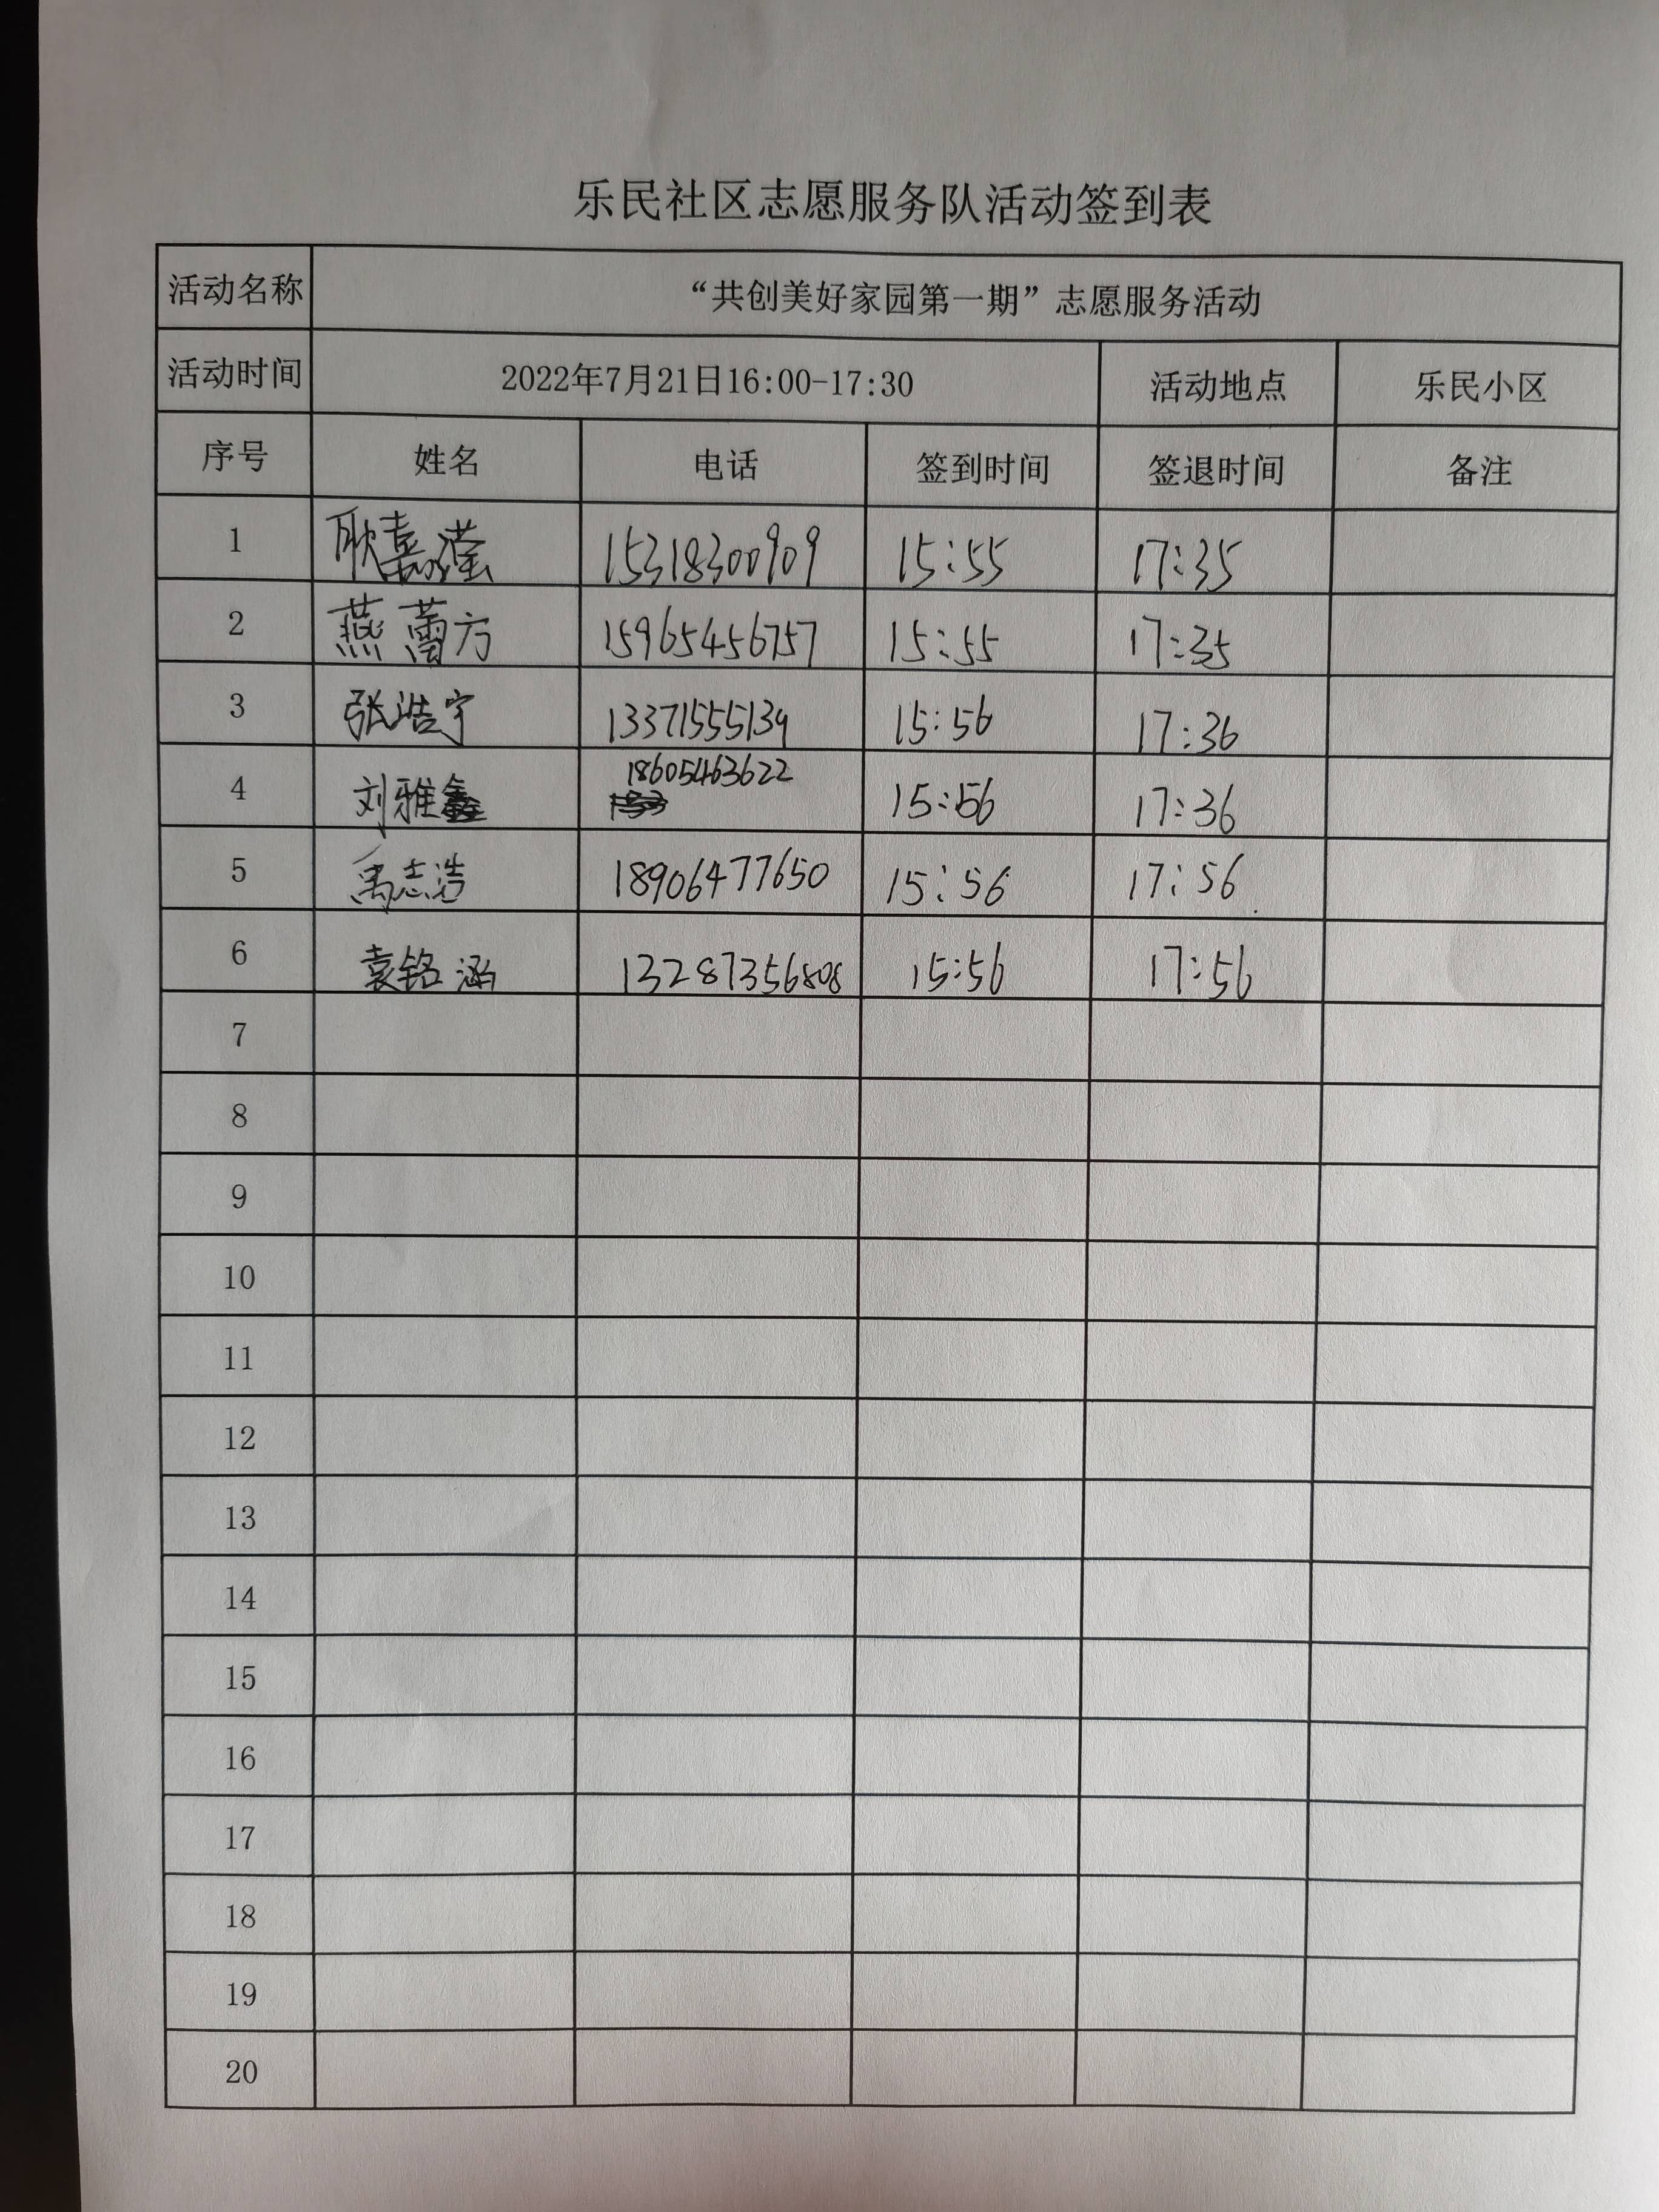 乐民社区志愿服务队活动签到表
活动名称 “共创美好家园第一期”志愿服务活动
活动时间 2022年7月21日16:00-17:30 活动地点 乐民小区
序号 姓名 电话 签到时间 签退时间 备注
1 耿嘉滢 15318300909 15:55 17:35
2 燕蕾方 15965456757 15:55 17:35
3 张浩宇 13371555139 15:56 17:36
4 刘雅鑫 18605463622 15:56 17:36
5 禹志浩 18906477650 15:56 17:56
6 袁铭涵 13287356808 15:56 17:56
7
8
9
10
11
12
13
14
15
16
17
18
19
20